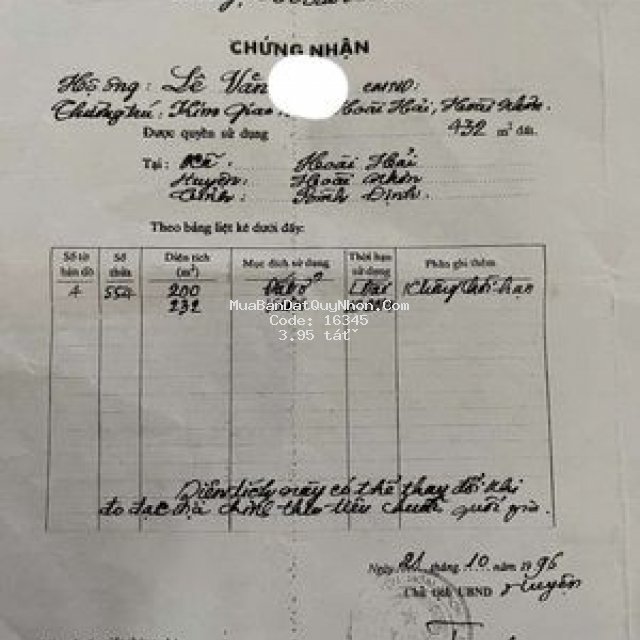 CHỨNG NHẬN
Hộ ông: Lê Văn
Thường trú: Kim Giao Hoài Hải, Hoài Nhơn
Được quyền sử dụng 432 m² đất.
Tại: Xã: Hoài Hải
Huyện: Hoài Nhơn
Tỉnh: Bình Định
Theo bảng liệt kê dưới đây:
Số tờ bản đồ Số thửa Diện tích (m²) Mục đích sử dụng Thời hạn sử dụng Phần ghi thêm
4 554 200 Đất ở
232
MuaBanDatQuyNhon.Com
Code: 16345
3.95 tất~
Diện tích này có thể thay đổi khi
đo đạc địa chính theo tiêu chuẩn quốc gia.
Ngày 21 tháng 10 năm 1996
Chủ tịch UBND Huyện